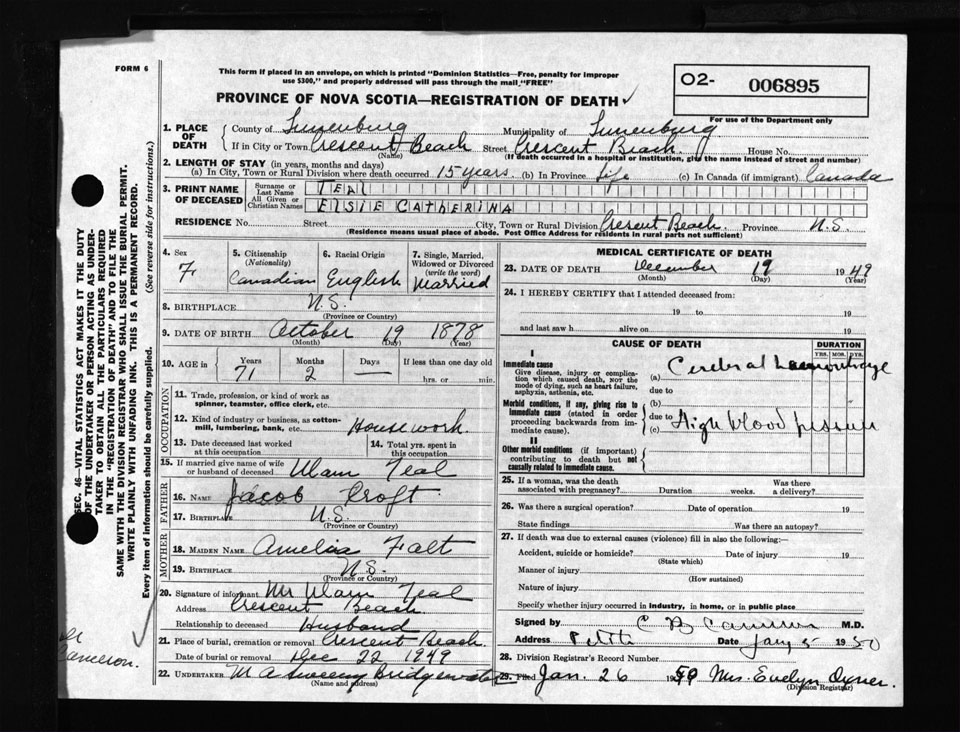 FORM 6
This form if placed in an envelope, on which is printed "Dominion Statistics—Free, penalty for improper
use $300," and properly addressed will pass through the mail "FREE"
O2- 006895
For use of the Department only
PROVINCE OF NOVA SCOTIA—REGISTRATION OF DEATH
1. PLACE OF DEATH
County of Lunenburg Municipality of Lunenburg
If in City or Town Crescent Beach Street Crescent Beach House No.
(Name) (If death occurred in a hospital or institution, give the name instead of street and number)
2. LENGTH OF STAY (in years, months and days)
(a) In City, Town or Rural Division where death occurred 15 years. (b) In Province Life (c) In Canada (if immigrant) Canada
3. PRINT NAME OF DECEASED
Surname or Last Name TEAL
All Given or Christian Names ELSIE CATHERINA
RESIDENCE No. Street City, Town or Rural Division Cresent Beach. Province N.S.
(Residence means usual place of abode. Post Office Address for residents in rural parts not sufficient)
4. Sex F
5. Citizenship (Nationality) Canadian
6. Racial Origin English
7. Single, Married, Widowed or Divorced (write the word) Married
8. BIRTHPLACE N.S.
(Province or Country)
9. DATE OF BIRTH October 19 1878
(Month) (Day) (Year)
10. AGE in Years 71 Months 2 Days — If less than one day old hrs. or min.
OCCUPATION
11. Trade, profession, or kind of work as spinner, teamster, office clerk, etc.
12. Kind of industry or business, as cotton-mill, lumbering, bank, etc. Housework.
13. Date deceased last worked at this occupation
14. Total yrs. spent in this occupation
15. If married give name of wife or husband of deceased Teal
FATHER
16. NAME Jacob Croft
17. BIRTHPLACE N.S.
(Province or Country)
MOTHER
18. MAIDEN NAME Amelia
19. BIRTHPLACE N.S.
(Province or Country)
20. Signature of informant Mr Teal
Address Crescent Beach
Relationship to deceased Husband
21. Place of burial, cremation or removal Crescent Beach
Date of burial or removal Dec 22 1949
22. UNDERTAKER M A Sweeny Bridgewater
(Name and address)
MEDICAL CERTIFICATE OF DEATH
23. DATE OF DEATH December 19 1949
(Month) (Day) (Year)
24. I HEREBY CERTIFY that I attended deceased from:
19 to 19
and last saw h alive on 19
CAUSE OF DEATH DURATION
YRS. MOS. DYS.
I
Immediate cause
Give disease, injury or complication which caused death, NOT the mode of dying, such as heart failure, asphyxia, asthenia, etc.
(a) Cerebral haemorrhage
due to
Morbid conditions, if any, giving rise to immediate cause (stated in order proceeding backwards from immediate cause).
(b)
due to
(c) High blood pressure
II
Other morbid conditions (if important) contributing to death but not causally related to immediate cause.
25. If a woman, was the death associated with pregnancy? Duration weeks. Was there a delivery?
26. Was there a surgical operation? Date of operation 19
State findings Was there an autopsy?
27. If death was due to external causes (violence) fill in also the following:
Accident, suicide or homicide? Date of injury 19
(State which)
Manner of injury
(How sustained)
Nature of injury
Specify whether injury occurred in industry, in home, or in public place
Signed by C B Cameron M.D.
Address Date Jany 5 1950
28. Division Registrar's Record Number
29. Filed Jan. 26 1950 Mrs. Evelyn
(Division Registrar)
SEC. 46—VITAL STATISTICS ACT MAKES IT THE DUTY
OF THE UNDERTAKER OR PERSON ACTING AS UNDER-
TAKER TO OBTAIN ALL THE PARTICULARS REQUIRED
IN THE "REGISTRATION OF DEATH" AND TO FILE THE
SAME WITH THE DIVISION REGISTRAR WHO SHALL ISSUE THE BURIAL PERMIT.
WRITE PLAINLY WITH UNFADING INK. THIS IS A PERMANENT RECORD.
Every item of information should be carefully supplied. (See reverse side for instructions.)
Cameron.